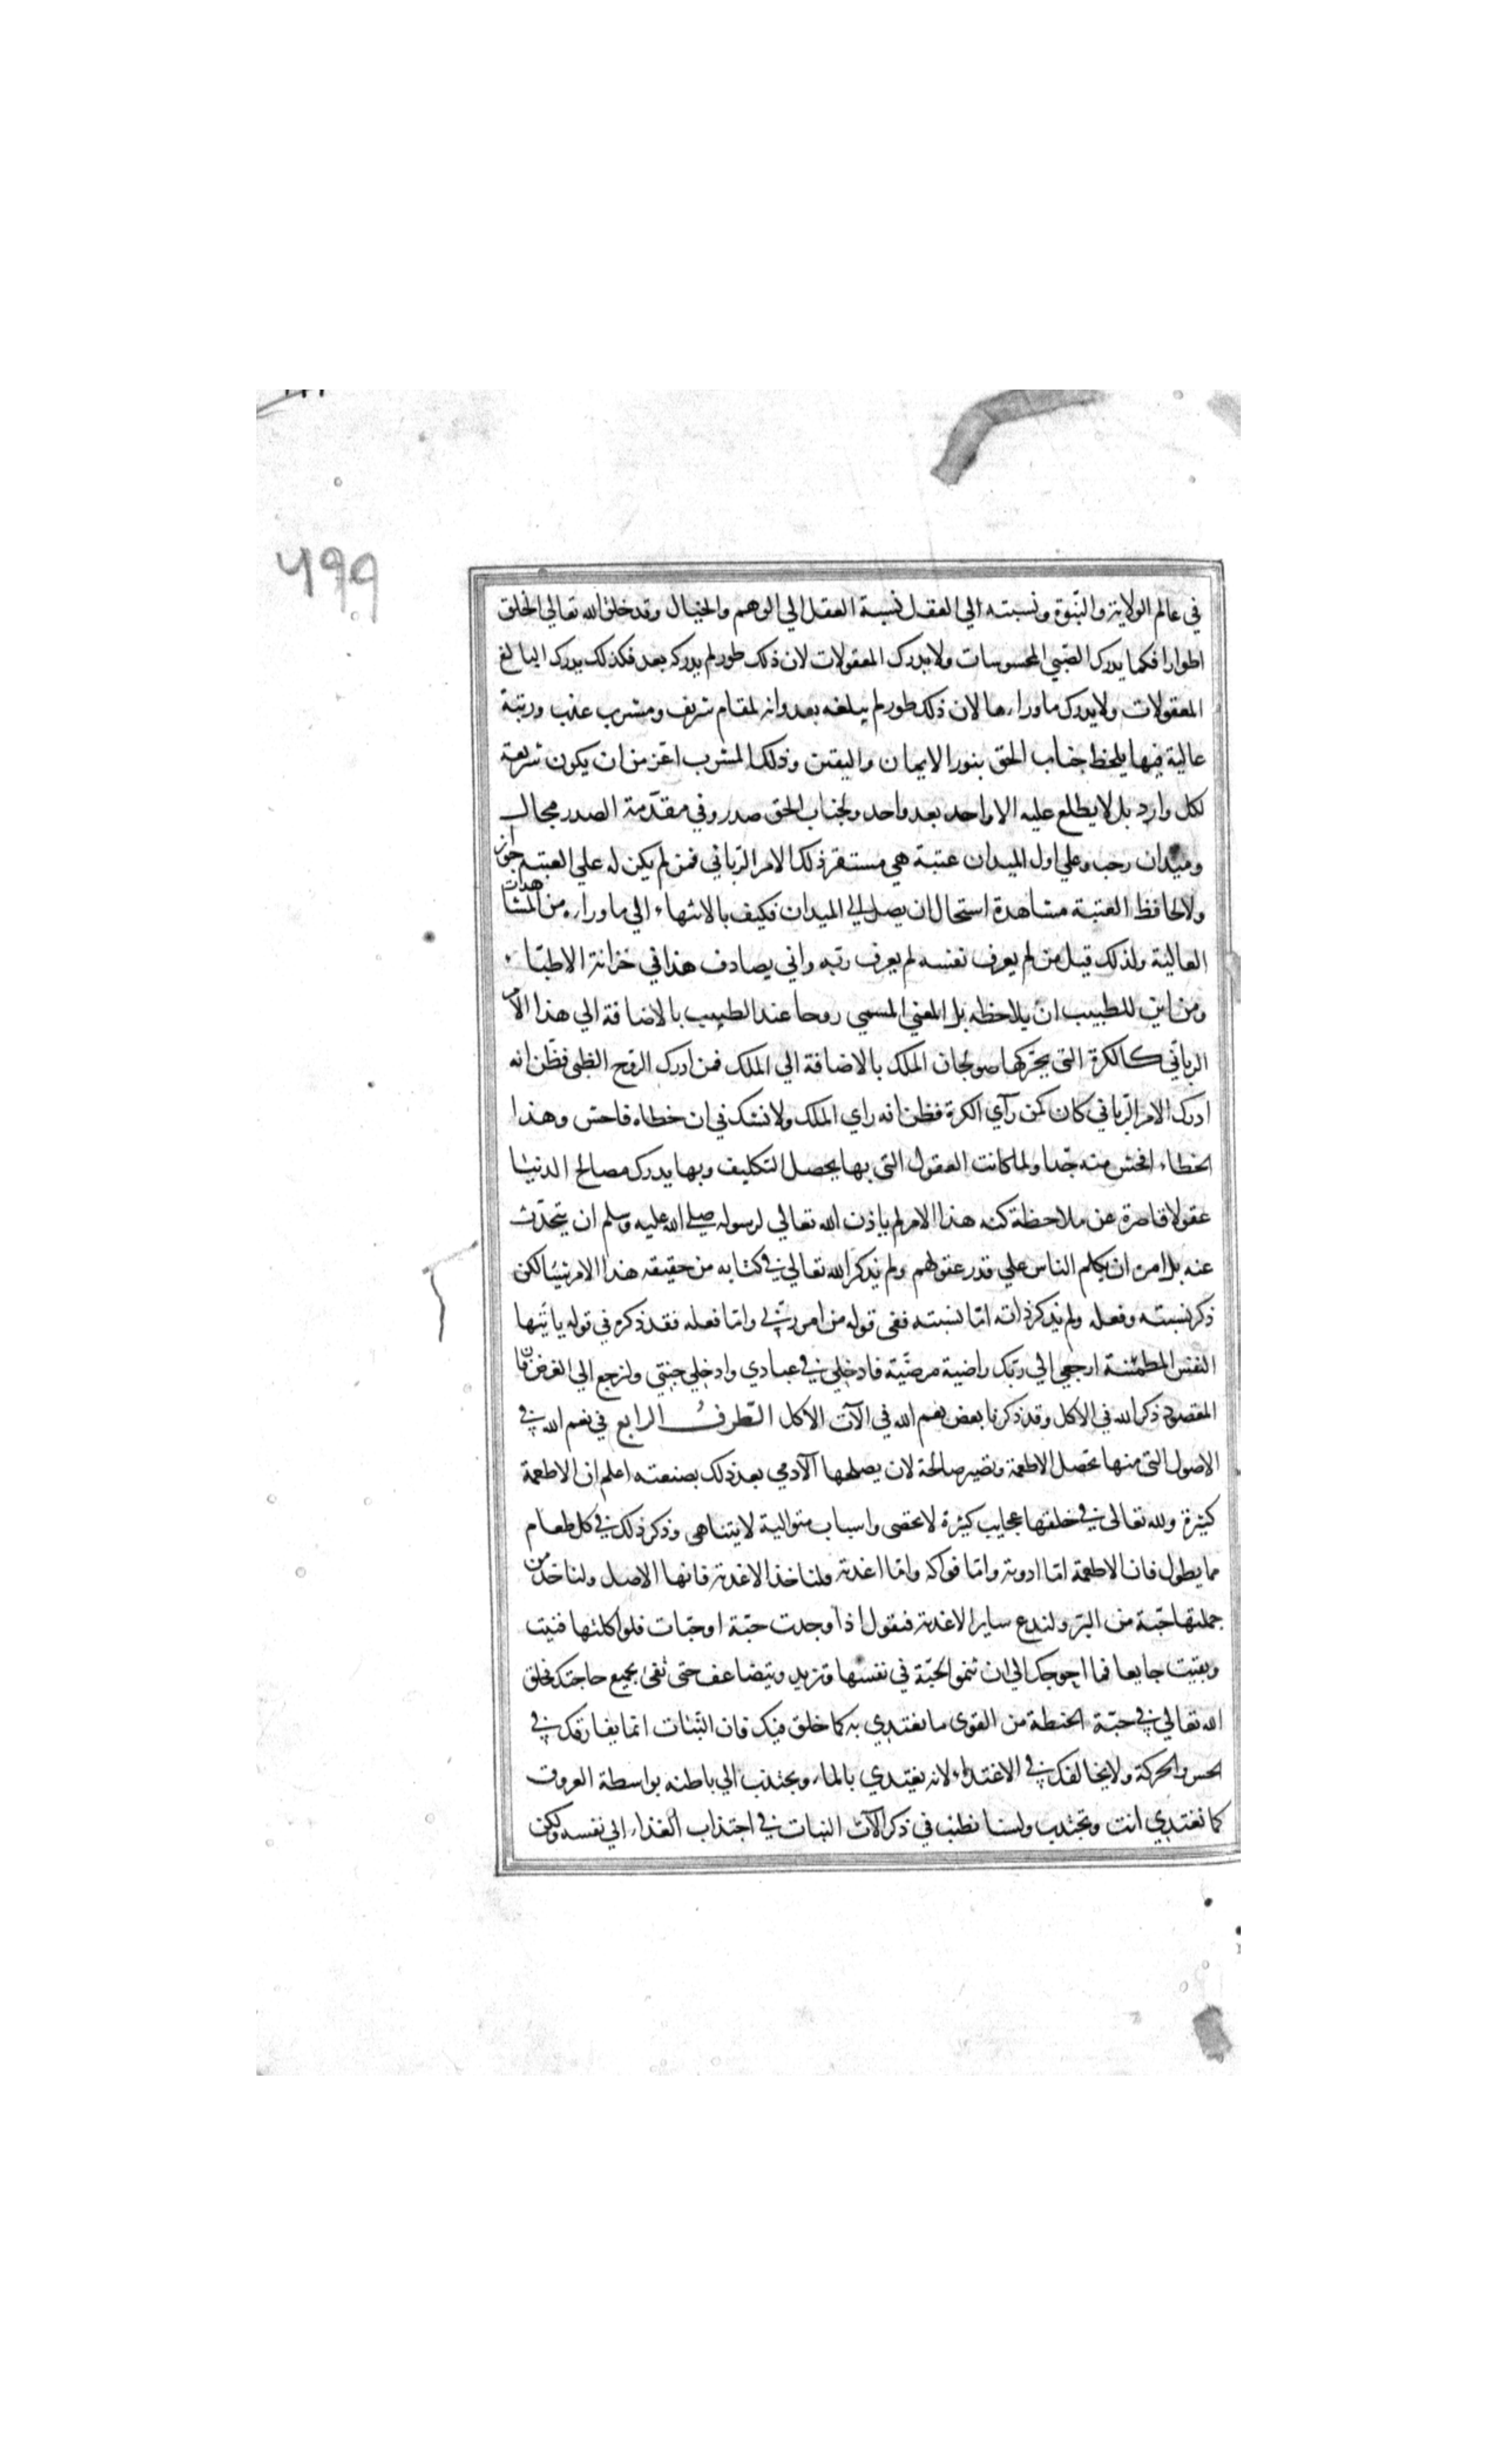 ۶۹۹
في عالم الولاية والنبوة ونسبته الي العقل نسبة العقل الي الوهم والخيال وقد خلق الله تعالي الخلق
اطوارا فكما يدرك الصبي المحسوسات ولا يدرك المعقولات لان ذلك طور لم يدركه بعد فكذلك يدرك البالغ
المعقولات ولا يدرك ما وراءها لان ذلك طور لم يبلغه بعد وانه لمقام شريف ومشرب عذب ورتبة
عالية فيها يلحظ جناب الحق بنور الايمان واليقين وذلك المشرب اعز من ان يكون شريعة
لكل وارد بل لا يطلع عليه الا واحد بعد واحد ولجناب الحق صدر وفي مقدمة الصدر مجال
وميدان رحب وعلي اول الميدان عتبة هي مستقر ذلك الامر الرباني فمن لم يكن له علي العتبة جواز
ولا لحافظ العتبة مشاهدة استحال ان يصل الي الميدان فكيف بالانتهاء الي ما وراءه من المشاهدات
العالية ولذلك قيل من لم يعرف نفسه لم يعرف ربه واني يصادف هذا في خزانة الاطباء
ومن اين للطبيب ان يلاحظه بل المعني المسمي روحا عند الطبيب بالاضافة الي هذا الامر
الرباني كالكرة التي يحركها صولجان الملك بالاضافة الي الملك فمن ادرك الروح الطبي فظن انه
ادرك الامر الرباني كان كمن رآي الكرة فظن انه راي الملك ولا نشك في ان خطاءه فاحش وهذا
الخطاء افحش منه جدا ولما كانت العقول التي بها يحصل التكليف وبها يدرك مصالح الدنيا
عقولا قاصرة عن ملاحظة كنه هذا الامر لم ياذن الله تعالي لرسوله صلي الله عليه وسلم ان يتحدث
عنه بل امره ان يكلم الناس علي قدر عقولهم ولم يذكر الله تعالي في كتابه من حقيقه هذا الامر شيئا لكن
ذكر نسبته وفعله ولم يذكر ذاته اما نسبته ففي قوله من امر ربي واما فعله فقد ذكره في قوله يا ايتها
النفس المطمئنة ارجعي الي ربك راضية مرضية فادخلي في عبادي وادخلي جنتي ولنرجع الي الغرض فان
المقصود ذكر الله في الاكل وقد ذكرنا بعض نعم الله في الآت الاكل الطرف الرابع في نعم الله في
الاصول التي منها تحصل الاطعمة وتصير صالحة لان يصلحها الآدمي بعد ذلك بصنعته اعلم ان الاطعمة
كثيرة ولله تعالي في خلقها عجايب كثيرة لا تحصى واسباب متوالية لا يتناهى وذكر ذلك في كل طعام
مما يطول فان الاطعمة اما ادوية واما فواكه واما اغذية فلناخذ الاغذية فانها الاصل ولناخذ من
جملتها حبة من البر ولندع ساير الاغذية فنقول اذا وجدت حبة او حبات فلو اكلتها فنيت
وبقيت جايعا فما احوجك الي ان تنمو الحبة في نفسها وتزيد وتتضاعف حتى تفى بجميع حاجتك فخلق
الله تعالي في حبة الحنطة من القوى ما يغتذي به كما خلق فيك فان النبات انما يفارقك في
الحس والحركة ولا يخالفك في الاغتذاء لانه يغتذي بالماء ويجتذب الي باطنه بواسطة العروق
كما تغتذي انت وتجتذب ولسنا نطنب في ذكر الآت النبات في اجتذاب الغذاء الي نفسه ولكن